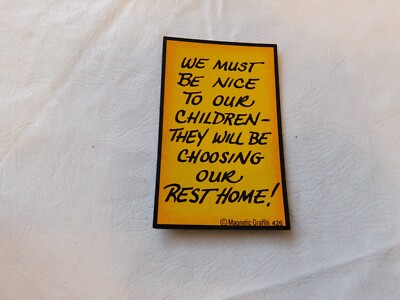 WE MUST
BE NICE
TO OUR
CHILDREN-
THEY WILL BE
CHOOSING
OUR
REST HOME!
© Magnetic Graffiti 426